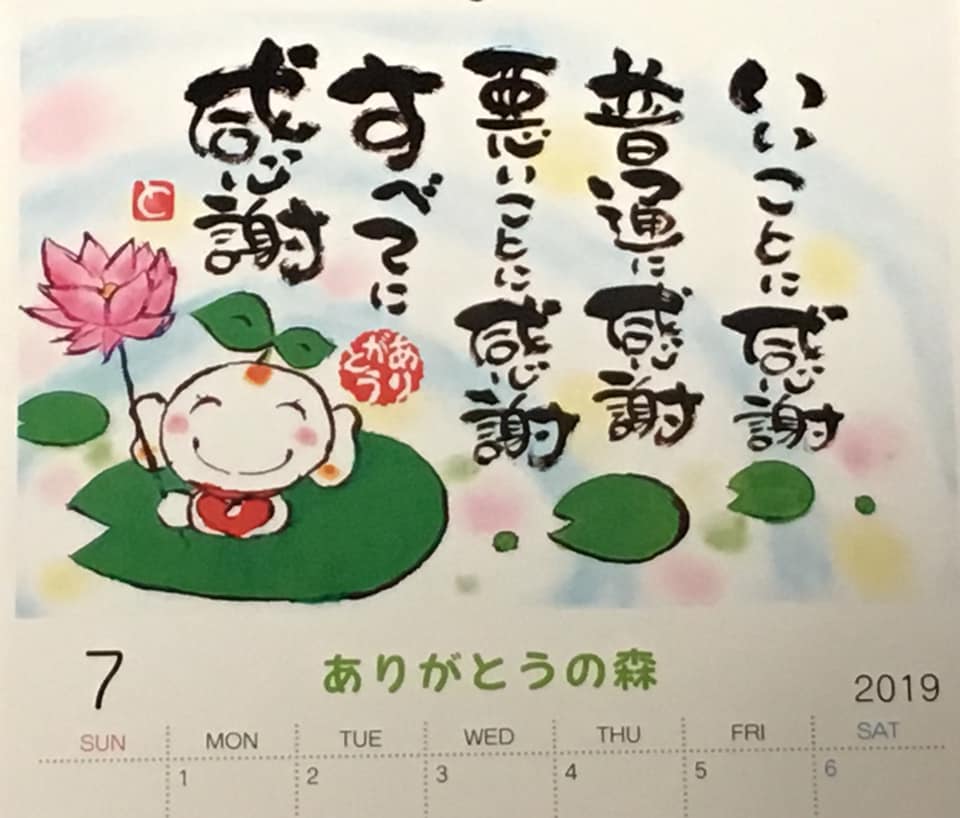 いいことに感謝
普通に感謝
悪いことに感謝
すべてに
感謝
と
ありがとう
7
ありがとうの森
2019
SUN MON TUE WED THU FRI SAT
1 2 3 4 5 6